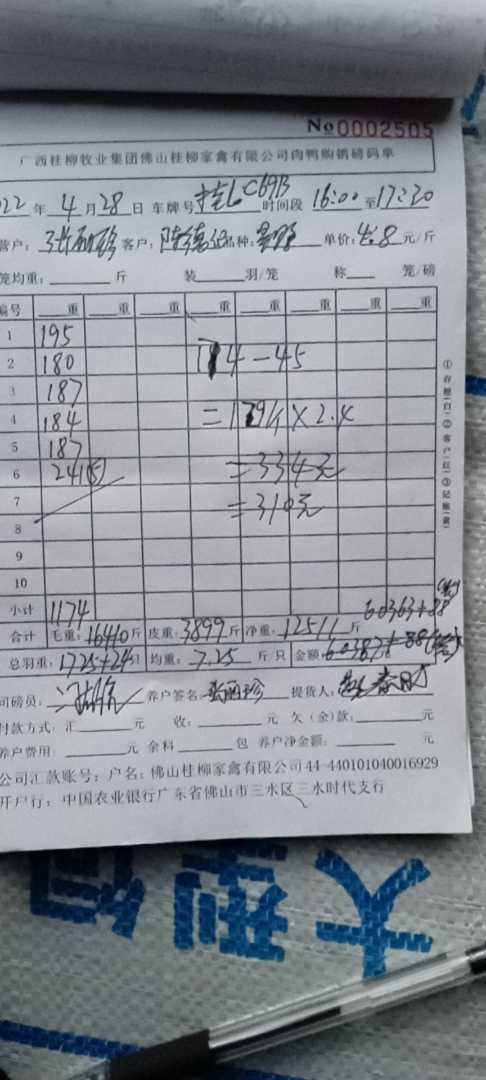 №0002505
广西桂柳牧业集团佛山桂柳家禽有限公司肉鸭购销磅码单
022 年 4 月 28 日 车牌号 桂LC69B 时间段 16:00 至 17:30
营户: 张丽珍 客户: 品种: 单价: 元/斤
笼均重: 斤 装 羽/笼 称 笼/磅
编号 重 重 重 重 重 重 重 重
1 195
2 180 174-45
3 187
4 184
5 187
6 241(5) =334元
7 =310元
8
9
10
小计 1174
合计 毛重: 16410 斤 皮重: 3899 斤 净重: 12511 斤
总羽重: 1725+24 只 均重: 7.25 斤/只 金额:
司磅员: 养户签名: 张丽珍 提货人:
付款方式: 汇 元 收: 元 欠(余)款: 元
养户费用: 元 余料 包 养户净金额: 元
公司汇款账号: 户名: 佛山桂柳家禽有限公司44-440101040016929
开户行: 中国农业银行广东省佛山市三水区三水时代支行
①存根(白)②客户(红)③记账(黄)
大型饲